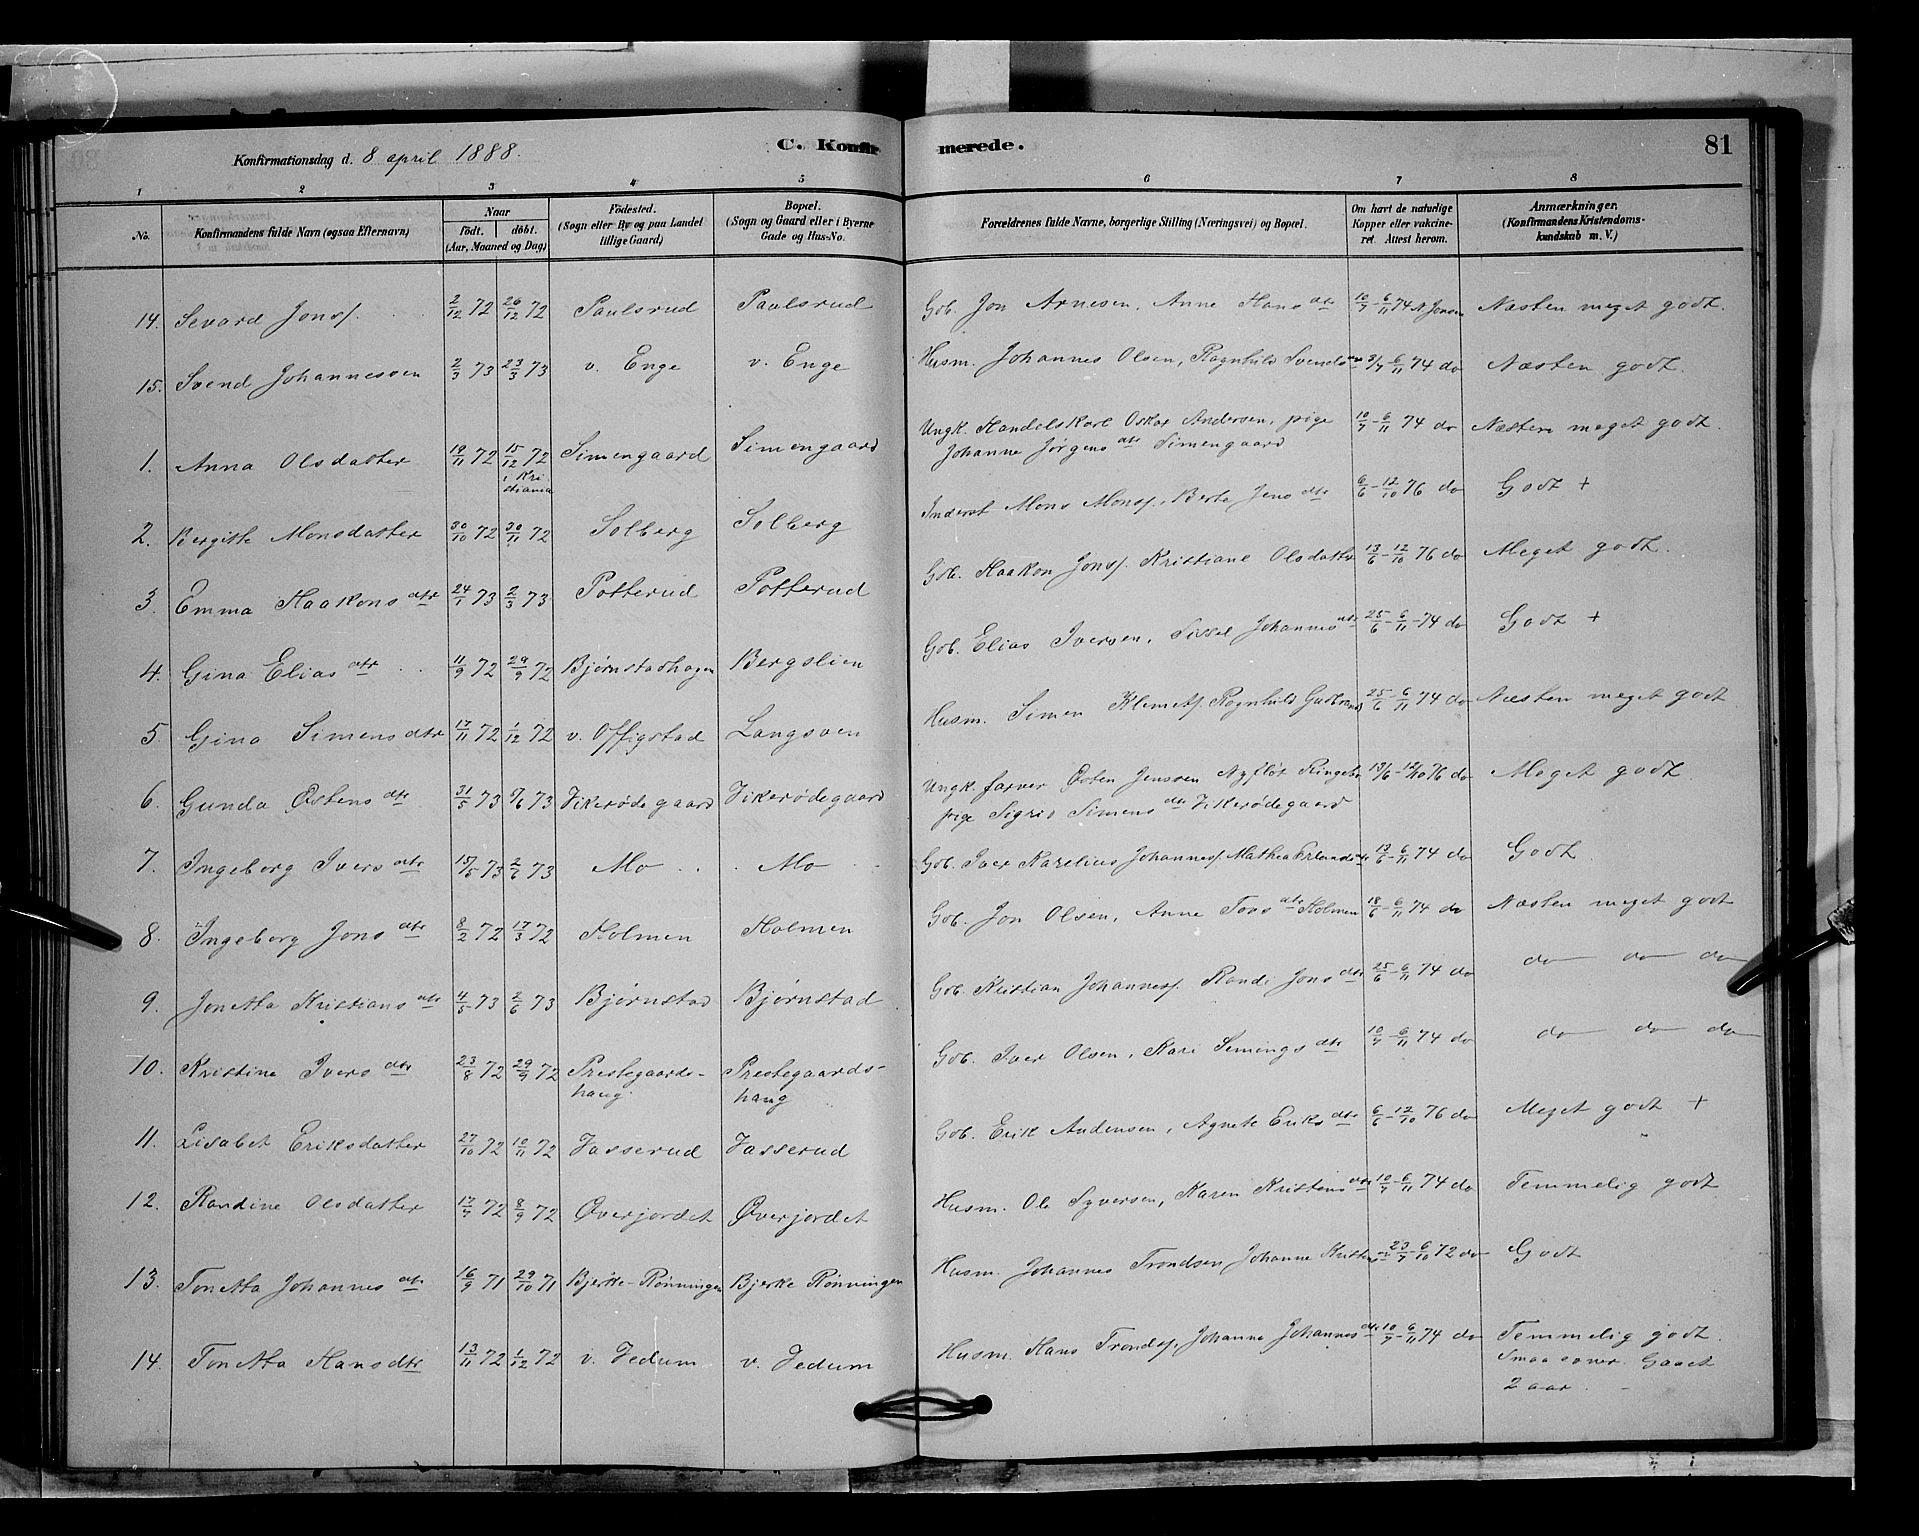 Konfirmationsdag d. 8 april 1888.
C. Konfirmerede.
81
1 2 3 4 5 6 7 8
No.
Konfirmandens fulde Navn (ogsaa Efternavn)
Naar
født. døbt.
(Aar, Maaned og Dag)
Fødested.
(Sogn eller By og paa Landet
tillige Gaard)
Bopæl.
(Sogn og Gaard eller i Byerne
Gade og Hus-No.
Forældrenes fulde Navne, borgerlige Stilling (Næringsvei) og Bopæl.
Om havt de naturlige
Kopper eller vakcine-
ret Attest herom.
Anmærkninger.
(Konfirmandens Kristendoms-
kundskab m. V.)
14. Sevard Jonsf. 2/12 72 26/12 72 Paulsrud Paulsrud Gob. Jon Arnesen, Anne Hans dtr 10/7 - 6/11 74 Næsten meget godt.
15. Svend Johannesven 2/3 73 23/3 73 v. Enge v. Enge Husm. Johannes Olsen, Ragnhild Svends dtr 3/7 - 6/11 74 do Næsten godt.
1. Anna Olsdatter 19/11 72 15/12 72 Simengaard Simengaard Ungk. Handelskarl Oskar Andersen, pige 10/7 - 6/11 74 do Næsten meget godt.
i Kri
stiania
Johanne Jørgens dtr Simengaard
2. Bergitte Monsdatter 30/10 72 30/11 72 Solberg Solberg Inderst Mons Monsf, Berte Jens dtr 6/6 - 12/10 76 do Godt +
3. Emma Haakons dtr 24/1 73 2/3 73 Potterud Potterud Gob. Haakon Jonsf. Kristiane Olsdatter 13/6 - 12/10 76 do Meget godt.
4. Gina Elias dtr 11/9 72 29/9 72 Bjørnstadhagen Bergslien Gob. Elias Iversen, Sissel Johannes dtr 25/6 - 6/11 - 74 do Godt +
5. Gina Simens dtr 17/11 72 1/12 72 v. Offigstad Langsven Husm. Simen Klemetsf. Ragnhild Gudbrands 25/6 - 6/11 74 do Næsten meget godt
6. Gunda Østens dtr 31/5 73 /6 73 Vikerødegaard Vikerødegaard Ungk. farver Østen Jenssen Nyfløt Ringebu 13/6 - 12/10 76 do Meget godt.
pige Sigrid Simens dtr Vikerødegaard
7. Ingeborg Ivers dtr 15/5 73 2/6 73 Mo Mo Gob. Iver Karelius Johannesf. Mathea Erlands dtr 13/6 - 6/11 74 do Godt
8. Ingeborg Jons dtr 8/2 72 17/3 72 Holmen Holmen Gob. Jon Olsen, Anne Tors dtr Holmen 18/6 - 6/11 74 do Næsten meget godt
9. Jonetta Kristians dtr 4/5 73 2/6 73 Bjørnstad Bjørnstad Gob. Kristian Johannesf. Randi Jons dtr 25/6 - 6/11 74 do do do do
10. Kristine Ivers dtr 23/8 72 29/9 72 Prestegaards- Prestegaards- Gob. Iver Olsen, Kari Semings dtr 10/7 - 6/11 74 do do do do
haug. haug
11. Lisabet Eriksdatter 27/10 72 10/11 72 Vasserud Vasserud Gob. Erik Andersen, Agnete Eriks dtr 6/6 - 12/10 76 do Meget godt +
12. Randine Olsdatter 17/7 72 8/9 72 Øverjordet Øverjordet Husm. Ole Syversen, Karen Kristens dtr 10/7 - 6/11 74 do Temmelig godt
13. Tonetta Johannes dtr 16/9 71 29/10 71 Bjerke-Rønningen Bjerke Rønningen Husm. Johannes Trondsen, Johanne Kristens 23/7 - 6/10 72 do Godt
14. Tonetta Hans dtr 13/11 72 1/12 72 v. Vedum v. Vedum Husm. Hans Trondsf, Johanne Johannes dtr 10/7 - 6/11 74 do Temmelig godt.
Smaa evner. Gaaet
2 aar.